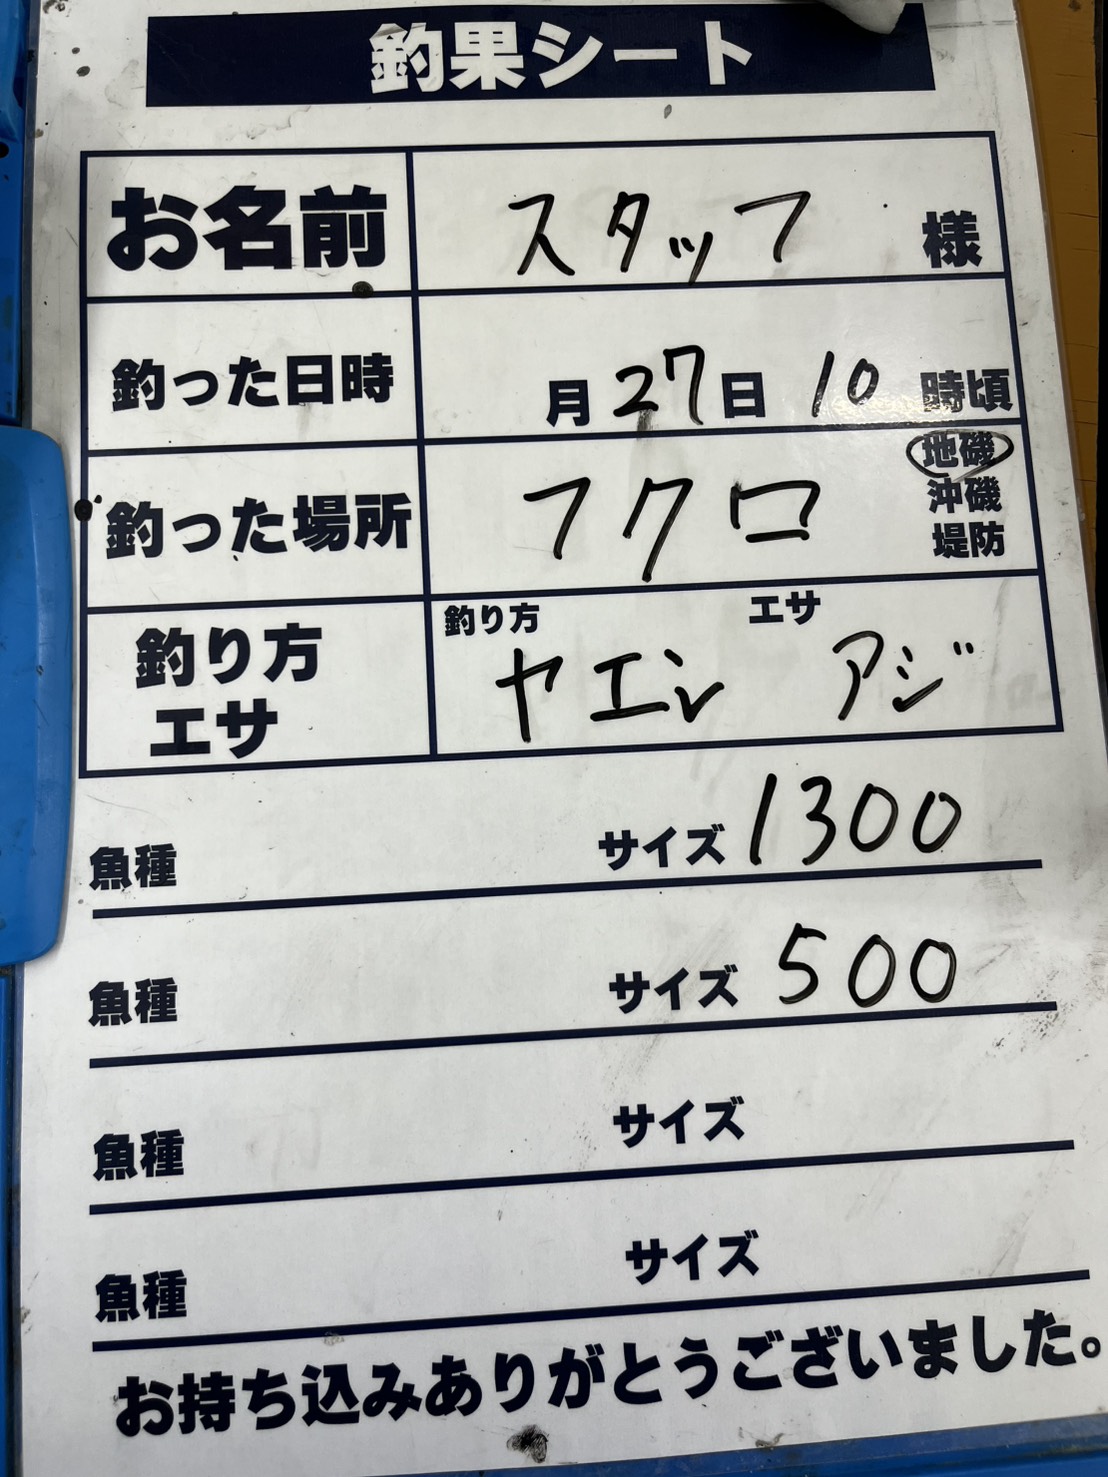 釣果シート
お名前 スタッフ 様
釣った日時 月 27日 10 時頃
釣った場所 フクロ 地磯
沖磯
堤防
釣り方 エサ
釣り方 ヤエン アジ
エサ
魚種 サイズ 1300
魚種 サイズ 500
魚種 サイズ
魚種 サイズ
お持ち込みありがとうございました。